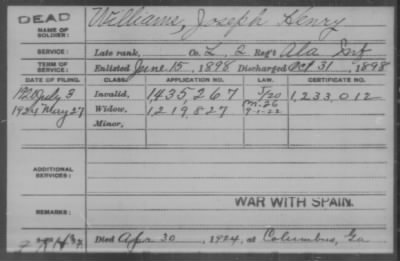 DEAD
NAME OF SOLDIER: Williams, Joseph Henry
SERVICE: Late rank, Co. L, 2 Reg't Ala Inf
TERM OF SERVICE: Enlisted June 15, 1898 Discharged Oct 31, 1898
DATE OF FILING. CLASS. APPLICATION NO. LAW. CERTIFICATE NO.
1920 July 3 Invalid, 1,435,267 5/20 1,233,012
m. 26
1924 May 27 Widow, 1,219,827 9-1-22
Minor,
ADDITIONAL SERVICES:
WAR WITH SPAIN.
REMARKS:
Died Apr 30, 1924, at Columbus, Ga